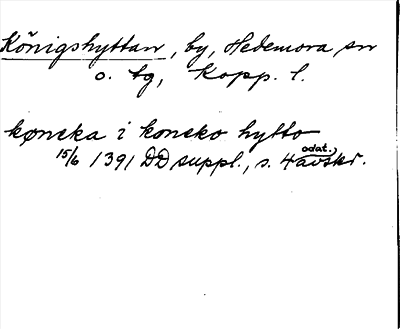 Königshyttan, by, Hedemora sn
o. tg, Kopp. l.
køneka i koneko hytto
15/6 1391 DD suppl., s. 4 odat. avskr.